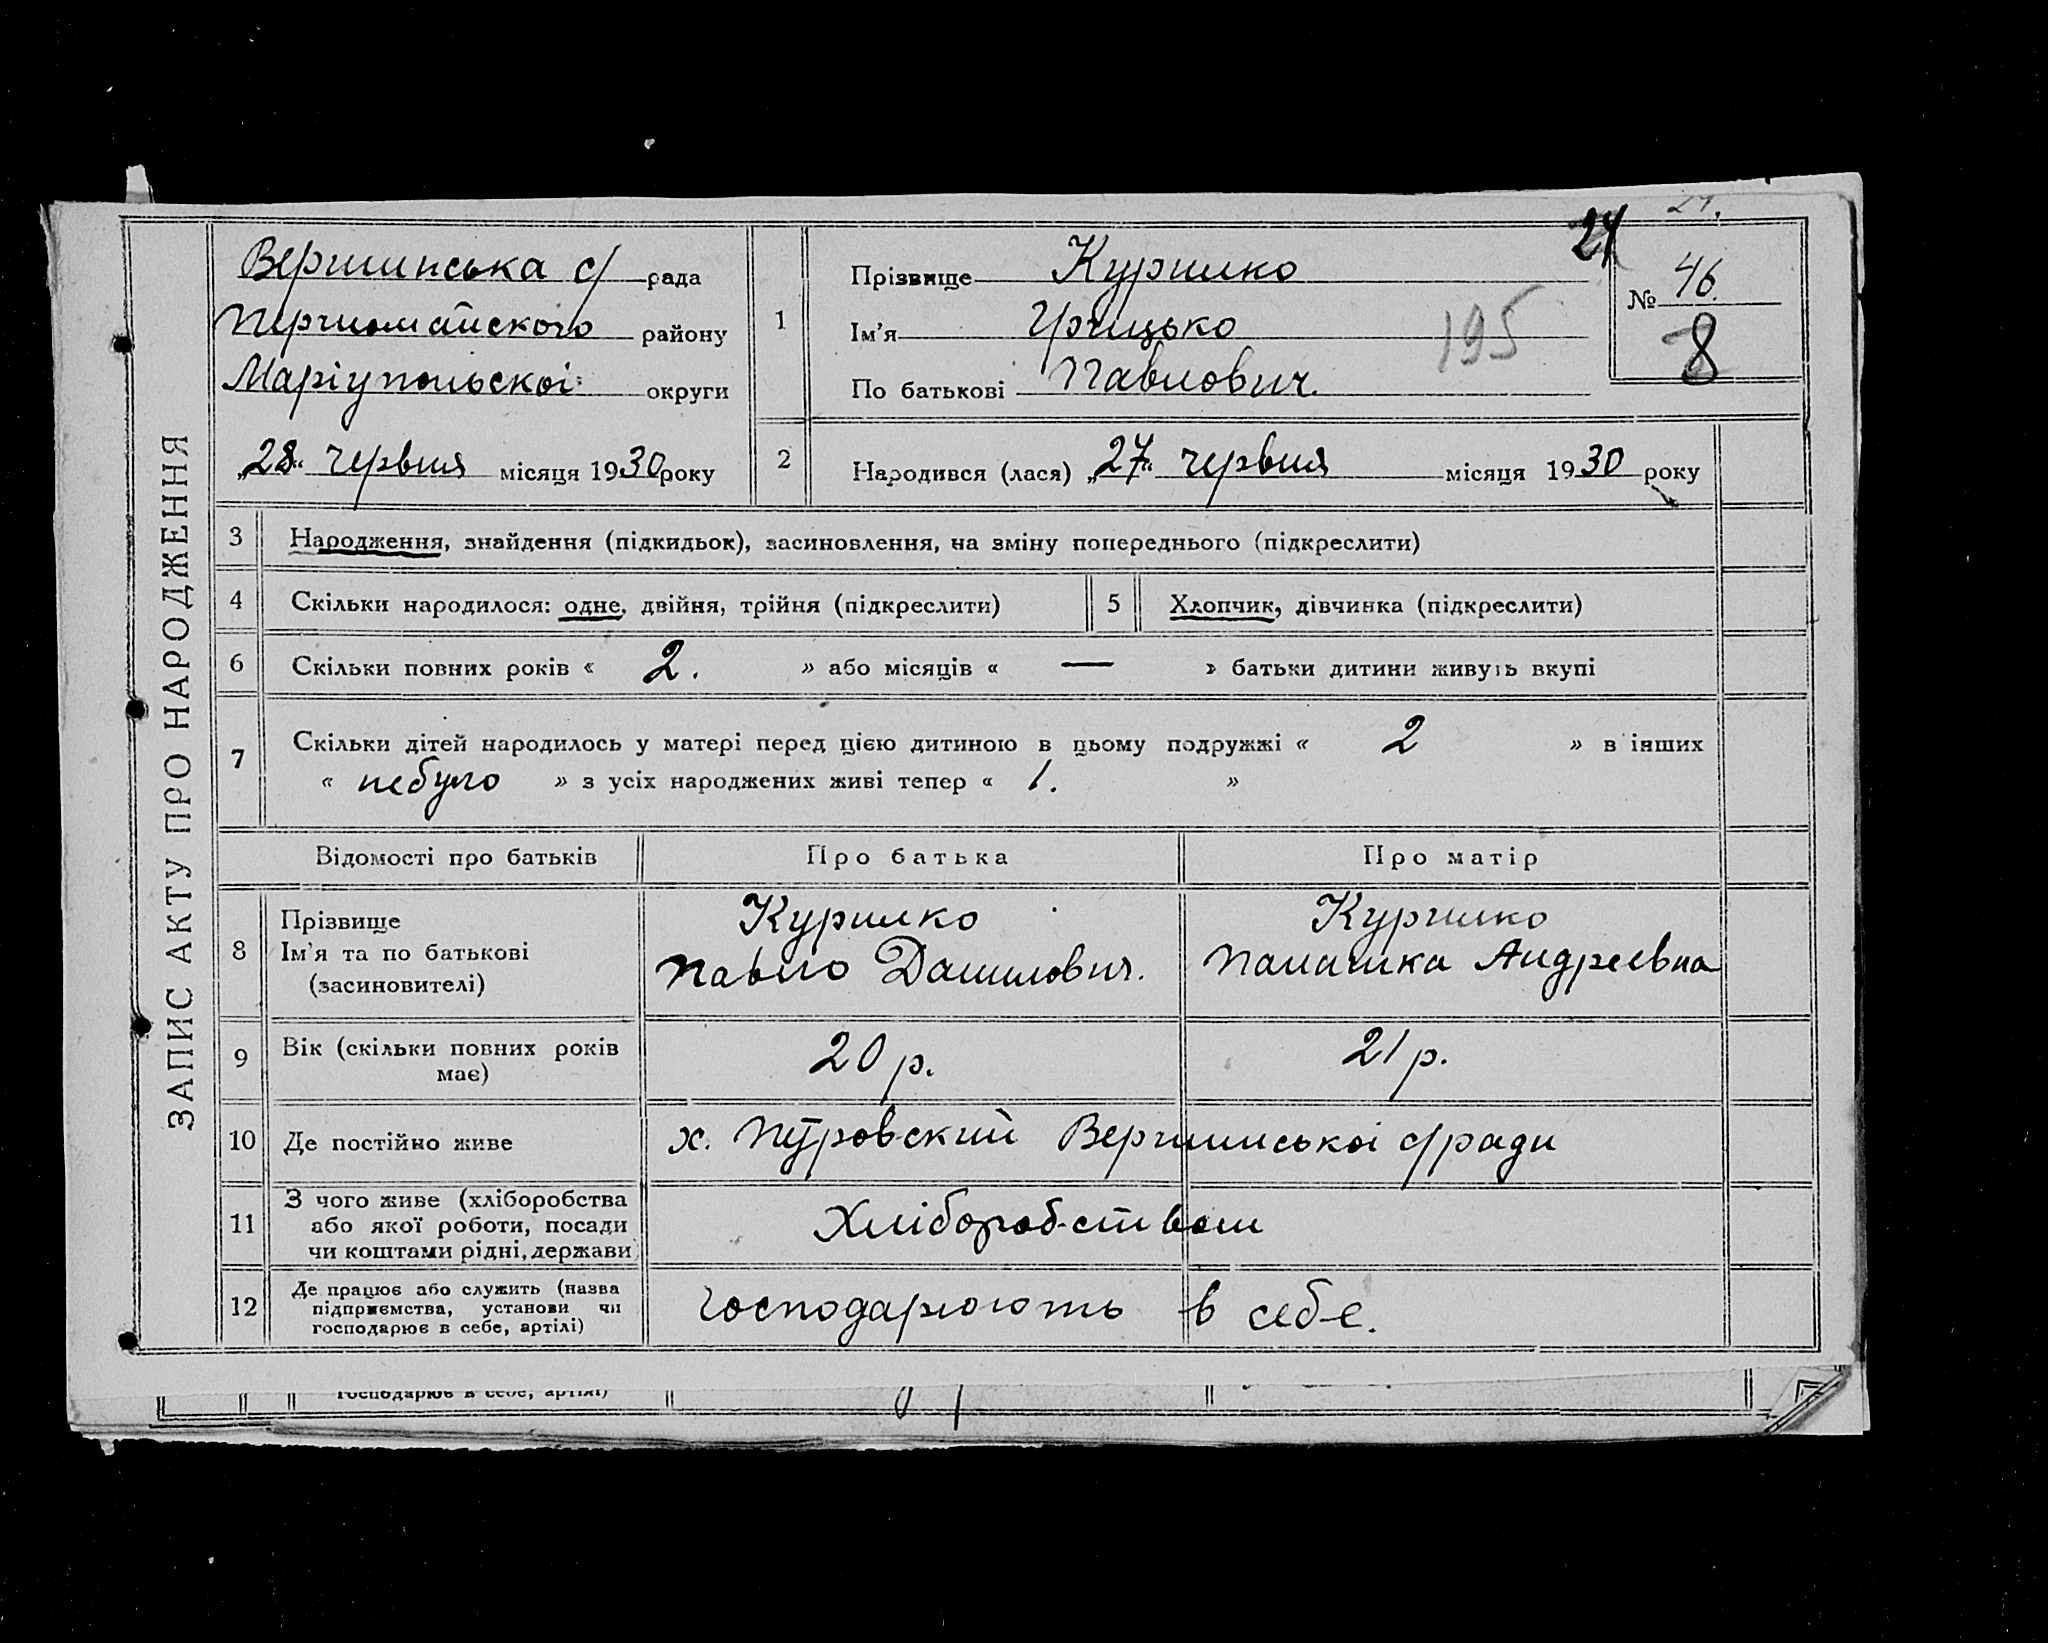 ЗАПИС АКТУ ПРО НАРОДЖЕННЯ
Вершинська с/ рада
Першомайского району
Маріупольскоі округи
„28“ червня місяця 1930 року
24
1
Прізвище Курилко
Ім'я Грицько
По батькові Павлович.
195
№ 46.
8
2
Народився (лася) „27“ червня місяця 1930 року
3 Народження, знайдення (підкидьок), засиновлення, на зміну попереднього (підкреслити)
4 Скільки народилося: одне, двійня, трійня (підкреслити)
5 Хлопчик, дівчинка (підкреслити)
6 Скільки повних років « 2. » або місяців « — » батьки дитини живуть вкупі
7 Скільки дітей народилось у матері перед цією дитиною в цьому подружжі « 2 » в інших
« небуло » з усіх народжених живі тепер « 1. »
Відомості про батьків Про батька Про матір
8 Прізвище
Ім'я та по батькові
(засиновителі)
Курилко
Павло Данилович.
Курилко
Палашка Андреевна
9 Вік (скільки повних років
має)
20 р.
21 р.
10 Де постійно живе
х. Петровский Вершинськоі с/ради
11 З чого живе (хліборобства
або якої роботи, посади
чи коштами рідні, держави
Хліборобством
12 Де працює або служить (назва
підприємства, установи чи
господарює в себе, артілі)
господарюють в себе.
господарює в себе, артілі)